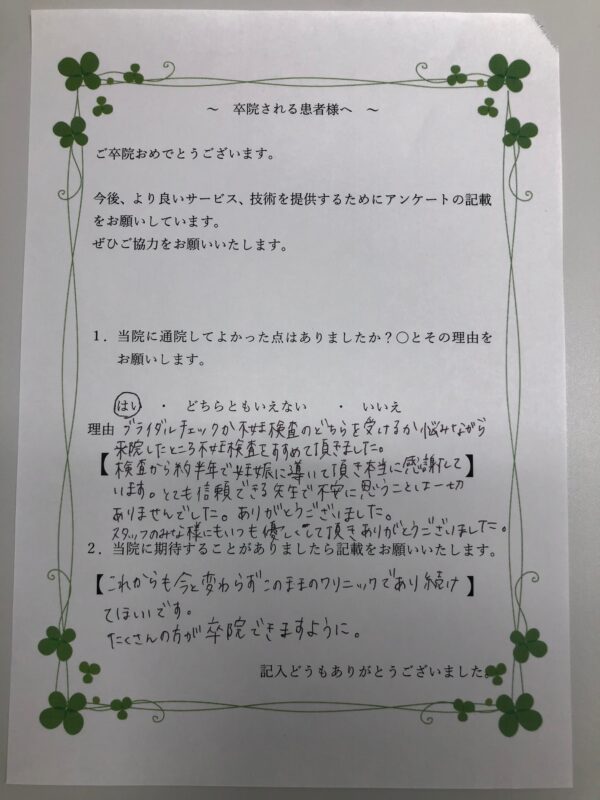 ～ 卒院される患者様へ ～
ご卒院おめでとうございます。
今後、より良いサービス、技術を提供するためにアンケートの記載
をお願いしています。
ぜひご協力をお願いいたします。
1．当院に通院してよかった点はありましたか？○とその理由を
お願いします。
はい ・ どちらともいえない ・ いいえ
理由 ブライダルチェックか不妊検査のどちらを受けるか悩みながら
来院したところ不妊検査をすすめて頂きました。
【検査から約半年で妊娠に導いて頂き本当に感謝して】
います。とても信頼できる先生で不安に思うことは一切
ありませんでした。ありがとうございました。
スタッフのみな様にもいつも優しくして頂きありがとうございました。
2．当院に期待することがありましたら記載をお願いいたします。
【これからも今と変わらずこのままのクリニックであり続け】
てほしいです。
たくさんの方が卒院できますように。
記入どうもありがとうございました。